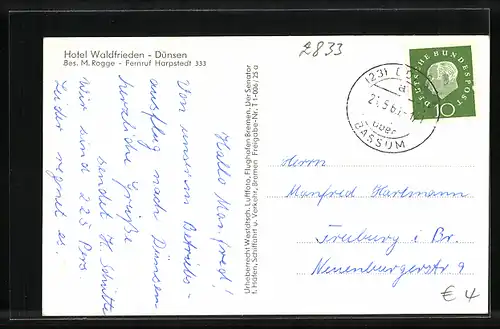 Hotel Waldfrieden - Dünsen
Bes. M. Rogge - Fernruf Harpstedt 333
2833
DEUTSCHE BUNDESPOST
10
(23)
a
über
BASSUM
Hallo Manfred!
Von unserm Betriebs-
ausflug nach Dünsen
herzliche Grüße
sendet H. Schütte
Wir sind 225 Pers.
Leider regnet es.
Urheberrecht Westdtsch. Luftfoto, Flughafen Bremen, Der Senator
f. Häfen, Schiffahrt u. Verkehr, Bremen Freigabe-Nr. T 1-006/25 a
Herrn
Manfred Hartmann
Freiburg i. Br.
Neuenburgerstr. 9
€ 4